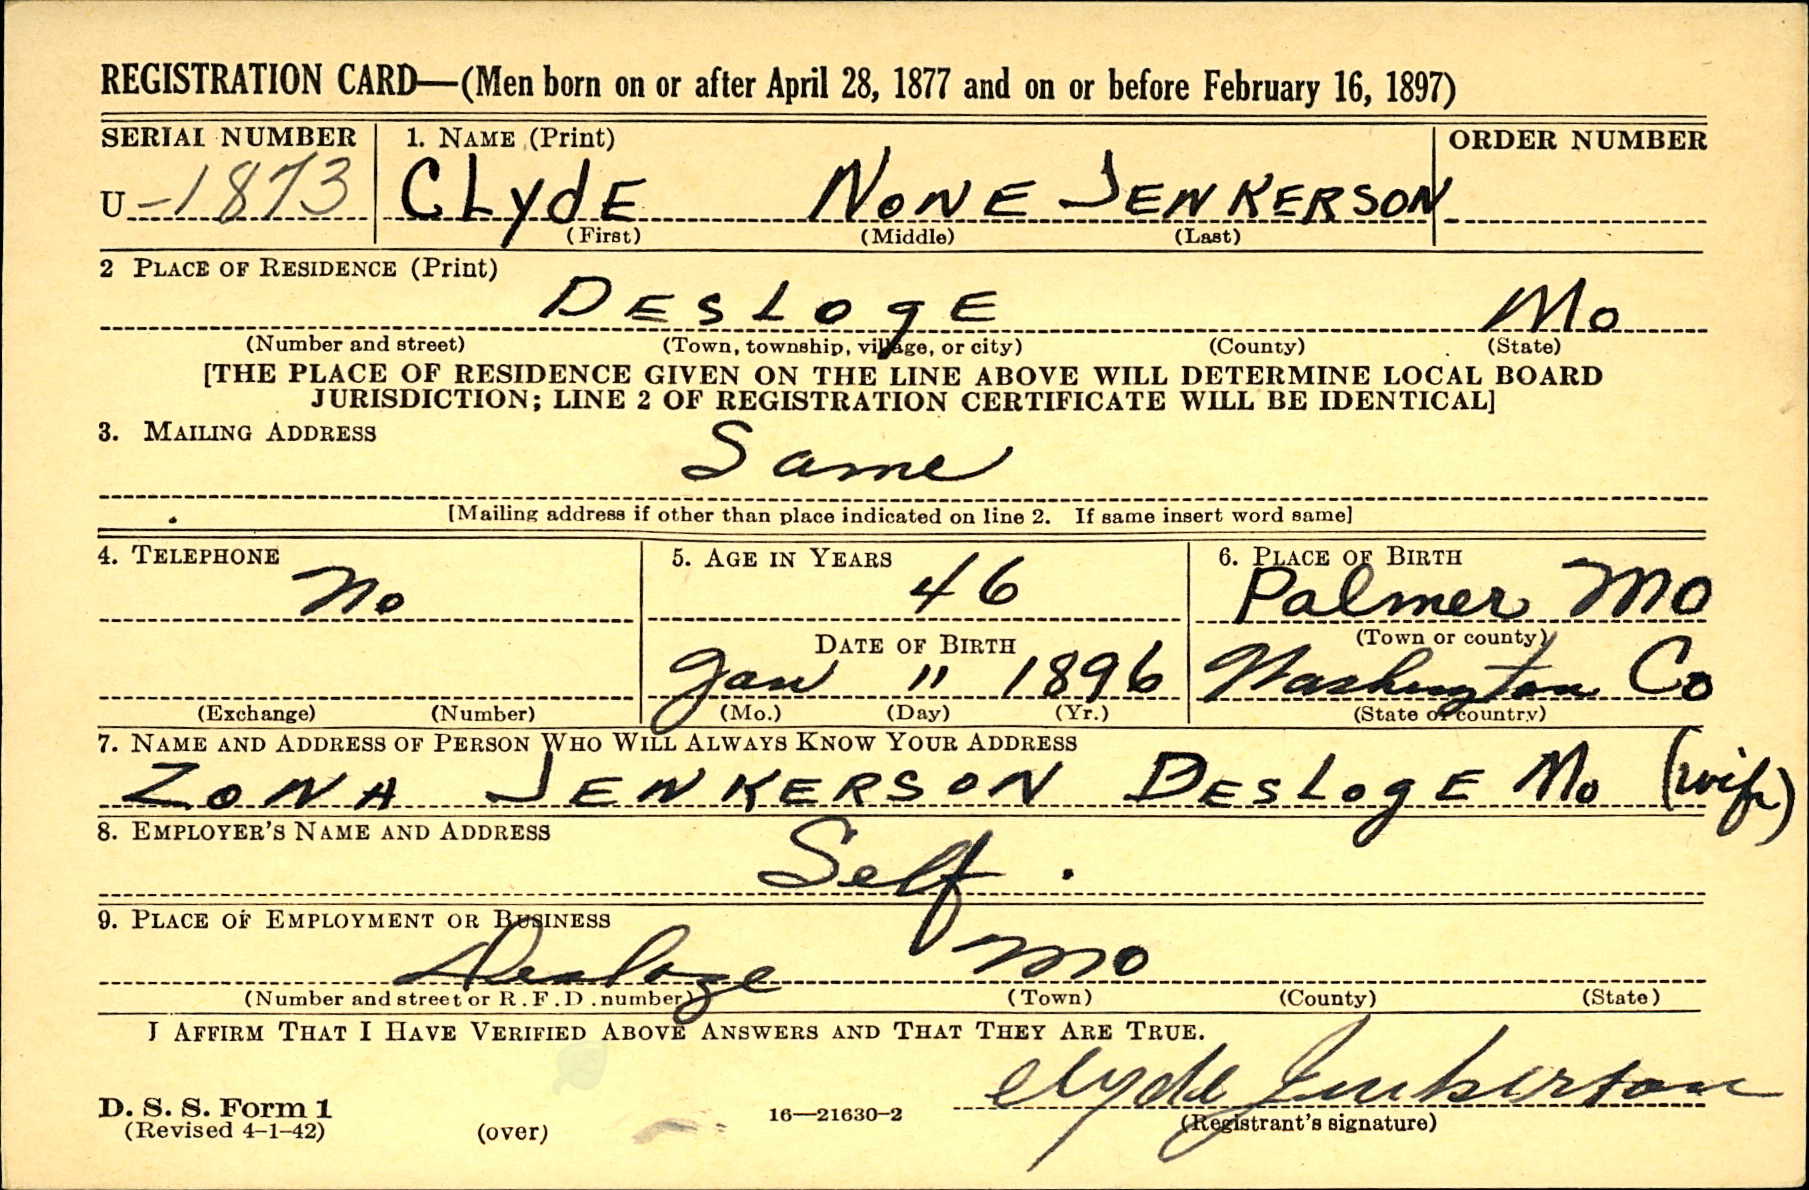 REGISTRATION CARD—(Men born on or after April 28, 1877 and on or before February 16, 1897)
SERIAL NUMBER 1. NAME (Print) ORDER NUMBER
U -1873 CLydE NoNE JENKERSON
(First) (Middle) (Last)
2 PLACE OF RESIDENCE (Print)
DESLOgE Mo
(Number and street) (Town, township, village, or city) (County) (State)
[THE PLACE OF RESIDENCE GIVEN ON THE LINE ABOVE WILL DETERMINE LOCAL BOARD
JURISDICTION; LINE 2 OF REGISTRATION CERTIFICATE WILL BE IDENTICAL]
3. MAILING ADDRESS
Same
[Mailing address if other than place indicated on line 2. If same insert word same]
4. TELEPHONE 5. AGE IN YEARS 6. PLACE OF BIRTH
No 46 Palmer Mo
DATE OF BIRTH (Town or county)
Jan 11 1896 Washington Co
(Exchange) (Number) (Mo.) (Day) (Yr.) (State or country)
7. NAME AND ADDRESS OF PERSON WHO WILL ALWAYS KNOW YOUR ADDRESS
ZONA JENKERSON DESLOgE Mo (wife)
8. EMPLOYER'S NAME AND ADDRESS
Self .
9. PLACE OF EMPLOYMENT OR BUSINESS
Desloge Mo
(Number and street or R.F.D. number) (Town) (County) (State)
I AFFIRM THAT I HAVE VERIFIED ABOVE ANSWERS AND THAT THEY ARE TRUE.
Clyde Jenkerson
D. S. S. Form 1 16—21630-2 (Registrant's signature)
(Revised 4-1-42) (over)